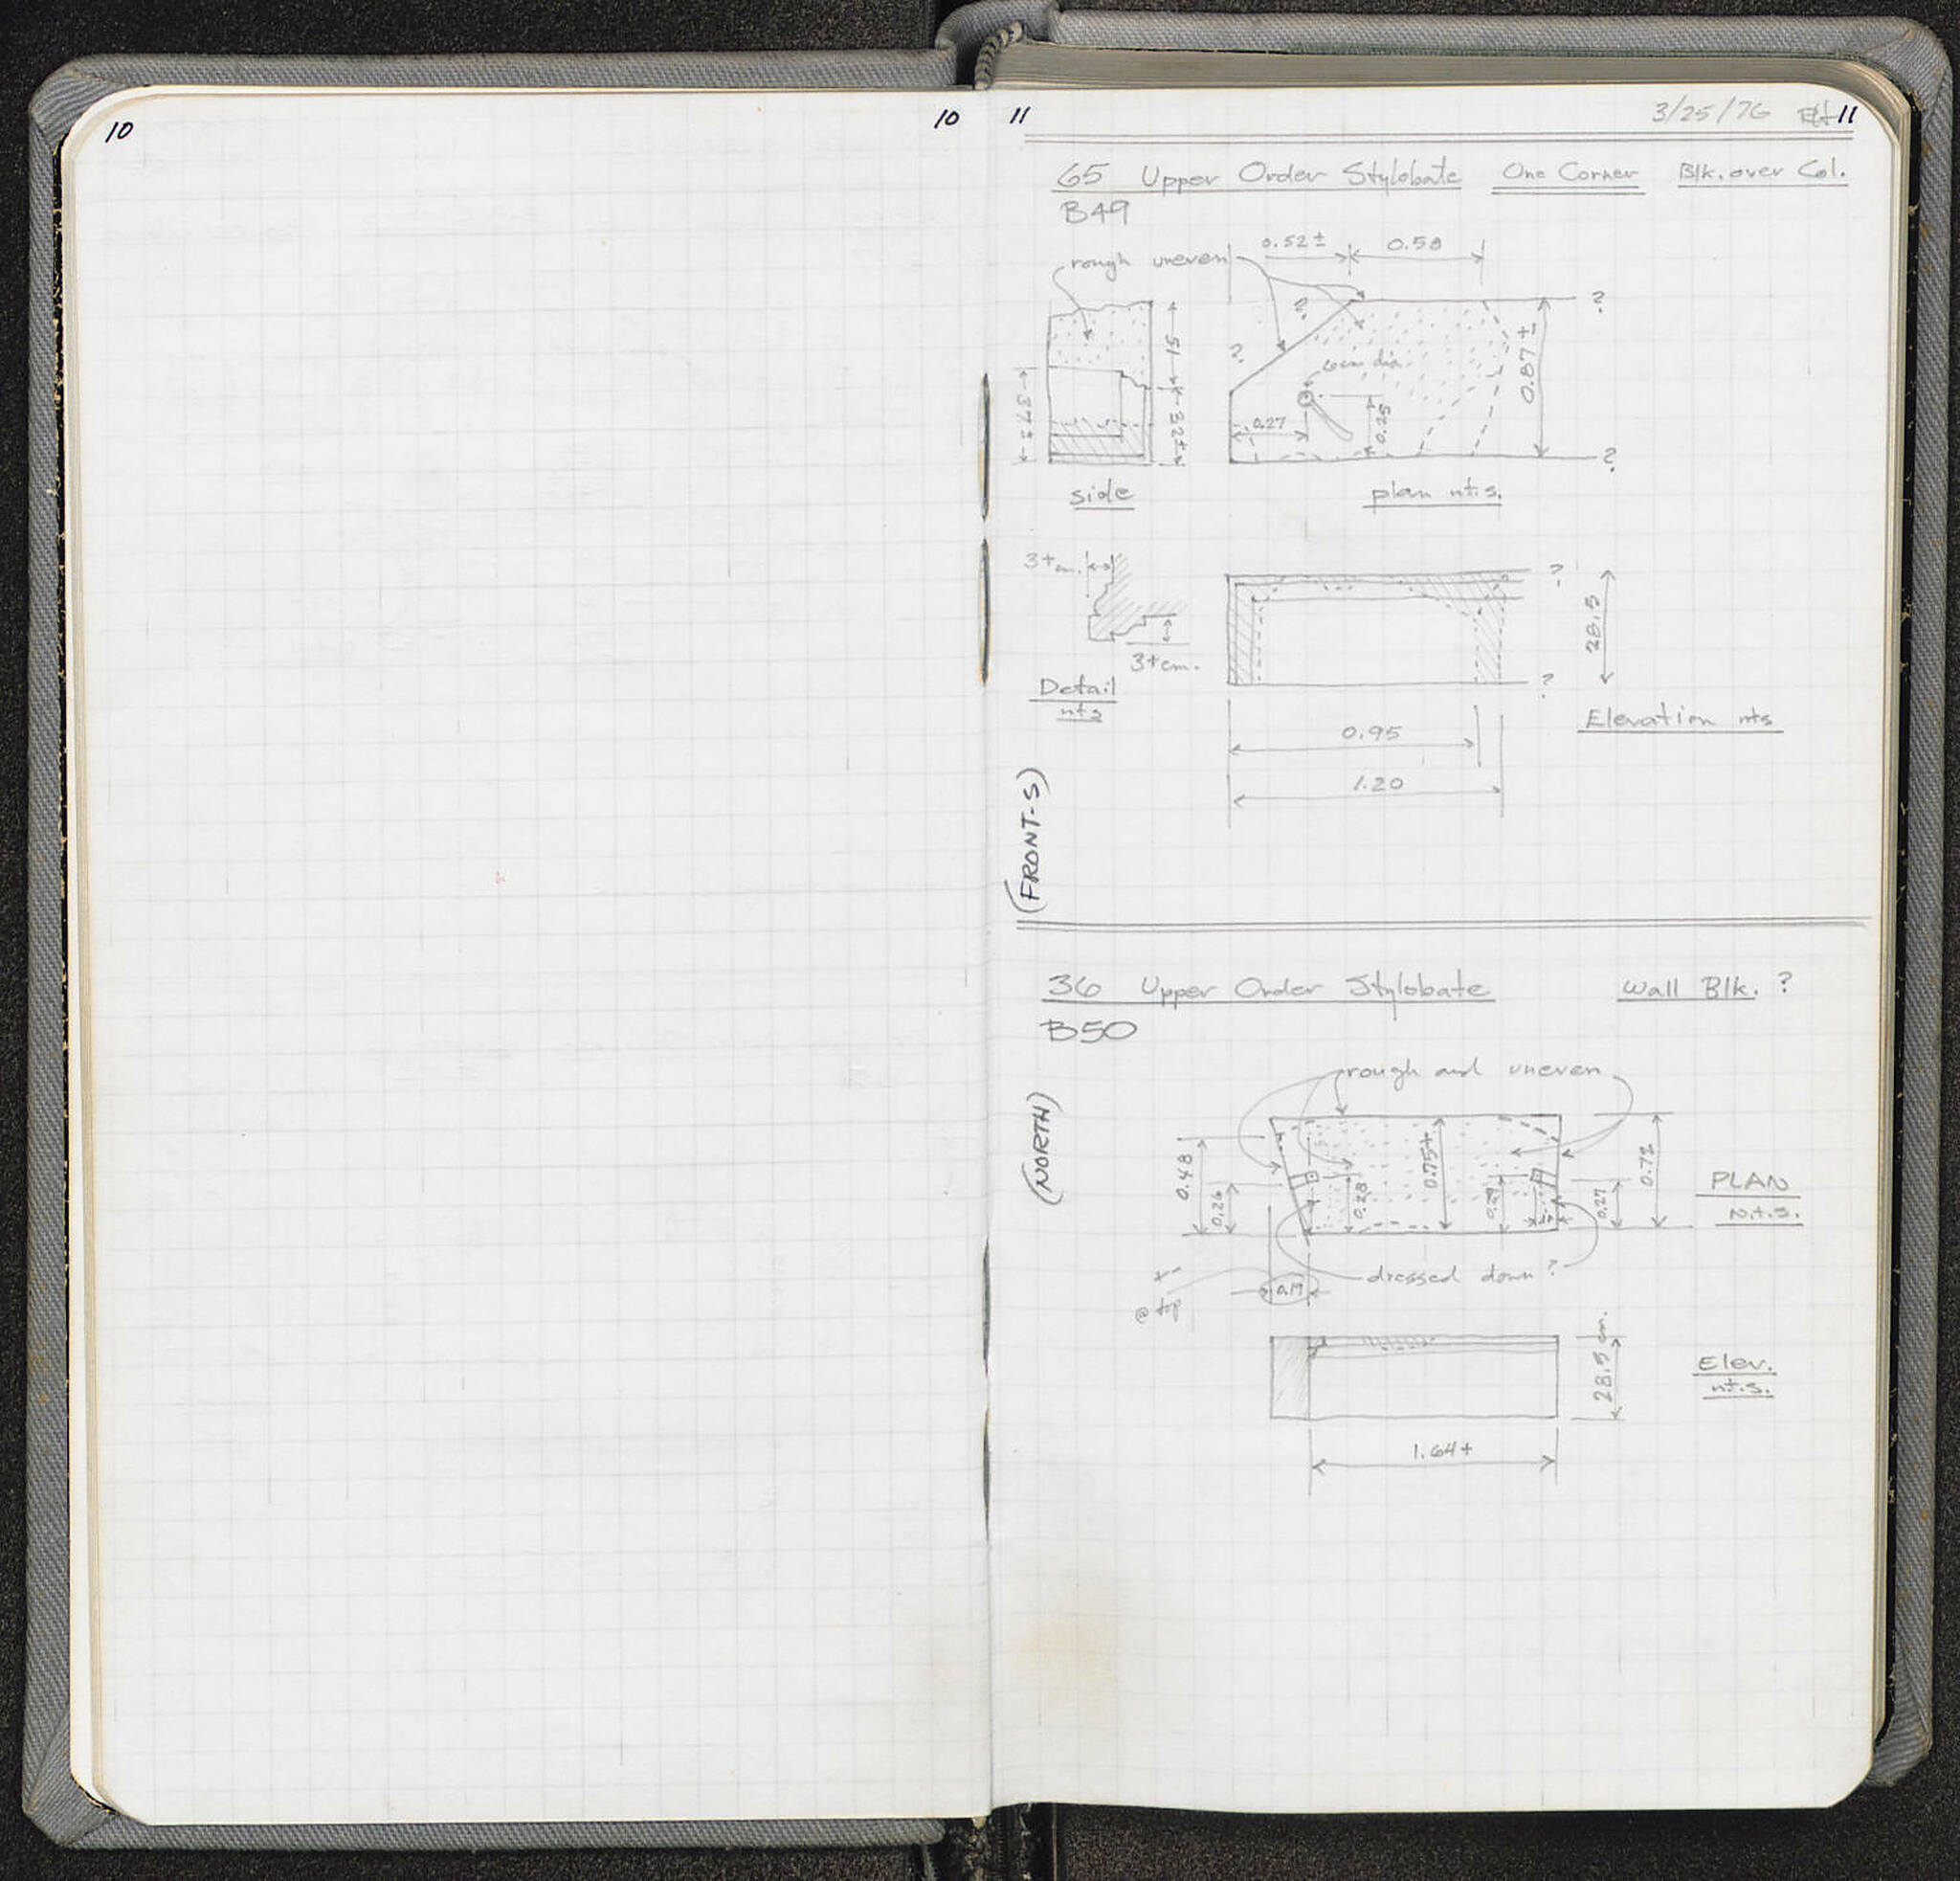 10 10
11 3/25/76 11
65 Upper Order Stylobate One Corner Blk. over Col.
B49
0.52± 0.58
rough uneven
?
?
?
6cm dia.
15
0.87±
37±
32±
0.27
0.25
?
side
plan n.t.s.
3+cm.
?
28.5
3+cm.
?
Detail
nts
Elevation nts
0.95
1.20
(FRONT-S)
36 Upper Order Stylobate Wall Blk. ?
B50
rough and uneven
(NORTH)
0.48
0.26
0.28
0.75+
0.27
0.27
0.72
PLAN
N.t.s.
dressed down?
+-
@ top
0.19
28.5 cm.
Elev.
n.t.s.
1.64+